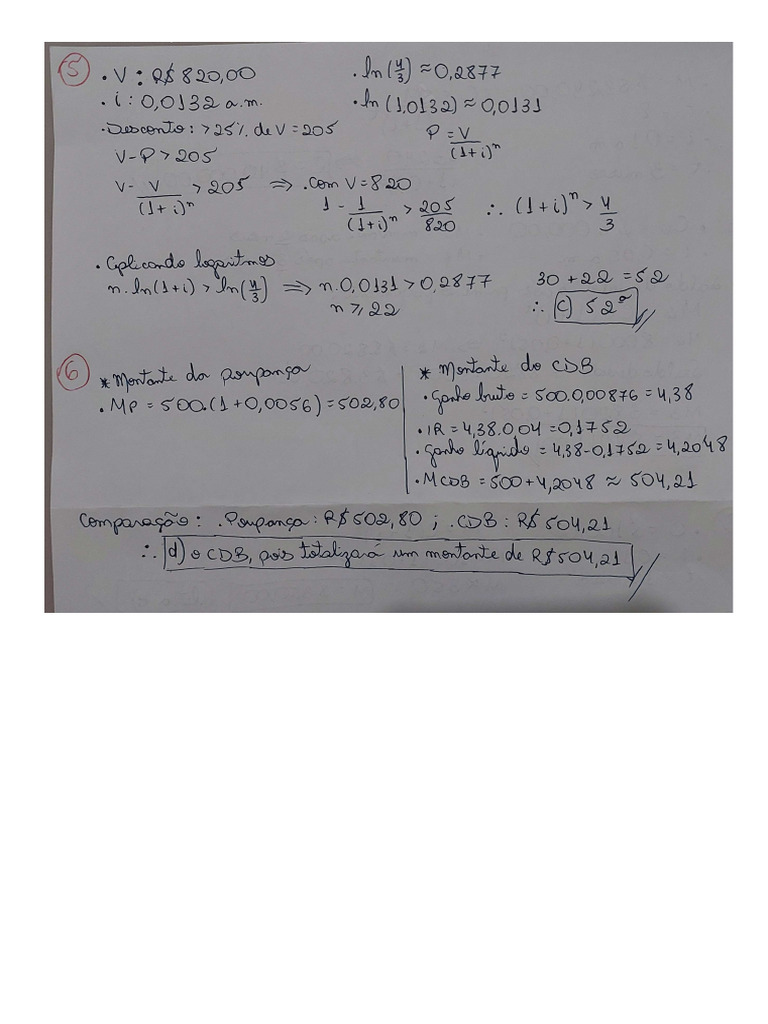 5 • V : R$ 820,00
• i : 0,0132 a.m.
• Desconto : > 25% de V = 205
V - P > 205
• ln(4/3) ≈ 0,2877
• ln (1,0132) ≈ 0,0131
P = V/(1+i)^n
V - V/(1+i)^n > 205 ⇒ . com V = 820
1 - 1/(1+i)^n > 205/820 ∴ (1+i)^n > 4/3
• Aplicando logaritmos
n. ln(1+i) > ln(4/3) ⇒ n. 0,0131 > 0,2877
n ≥ 22
30 + 22 = 52
∴ c) 52º
6 * Montante da poupança
• MP = 500.(1 + 0,0056) = 502,80
* Montante do CDB
• Ganho bruto = 500.0,00876 = 4,38
• IR = 4,38.0,04 = 0,1752
• Ganho líquido = 4,38 - 0,1752 = 4,2048
• MCDB = 500 + 4,2048 ≈ 504,21
Comparação : . Poupança : R$ 502,80 ; . CDB : R$ 504,21
∴ d) o CDB, pois totalizará um montante de R$ 504,21